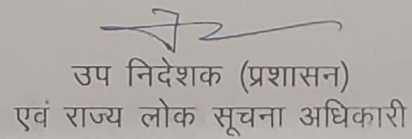 उप निदेशक (प्रशासन)
एवं राज्य लोक सूचना अधिकारी